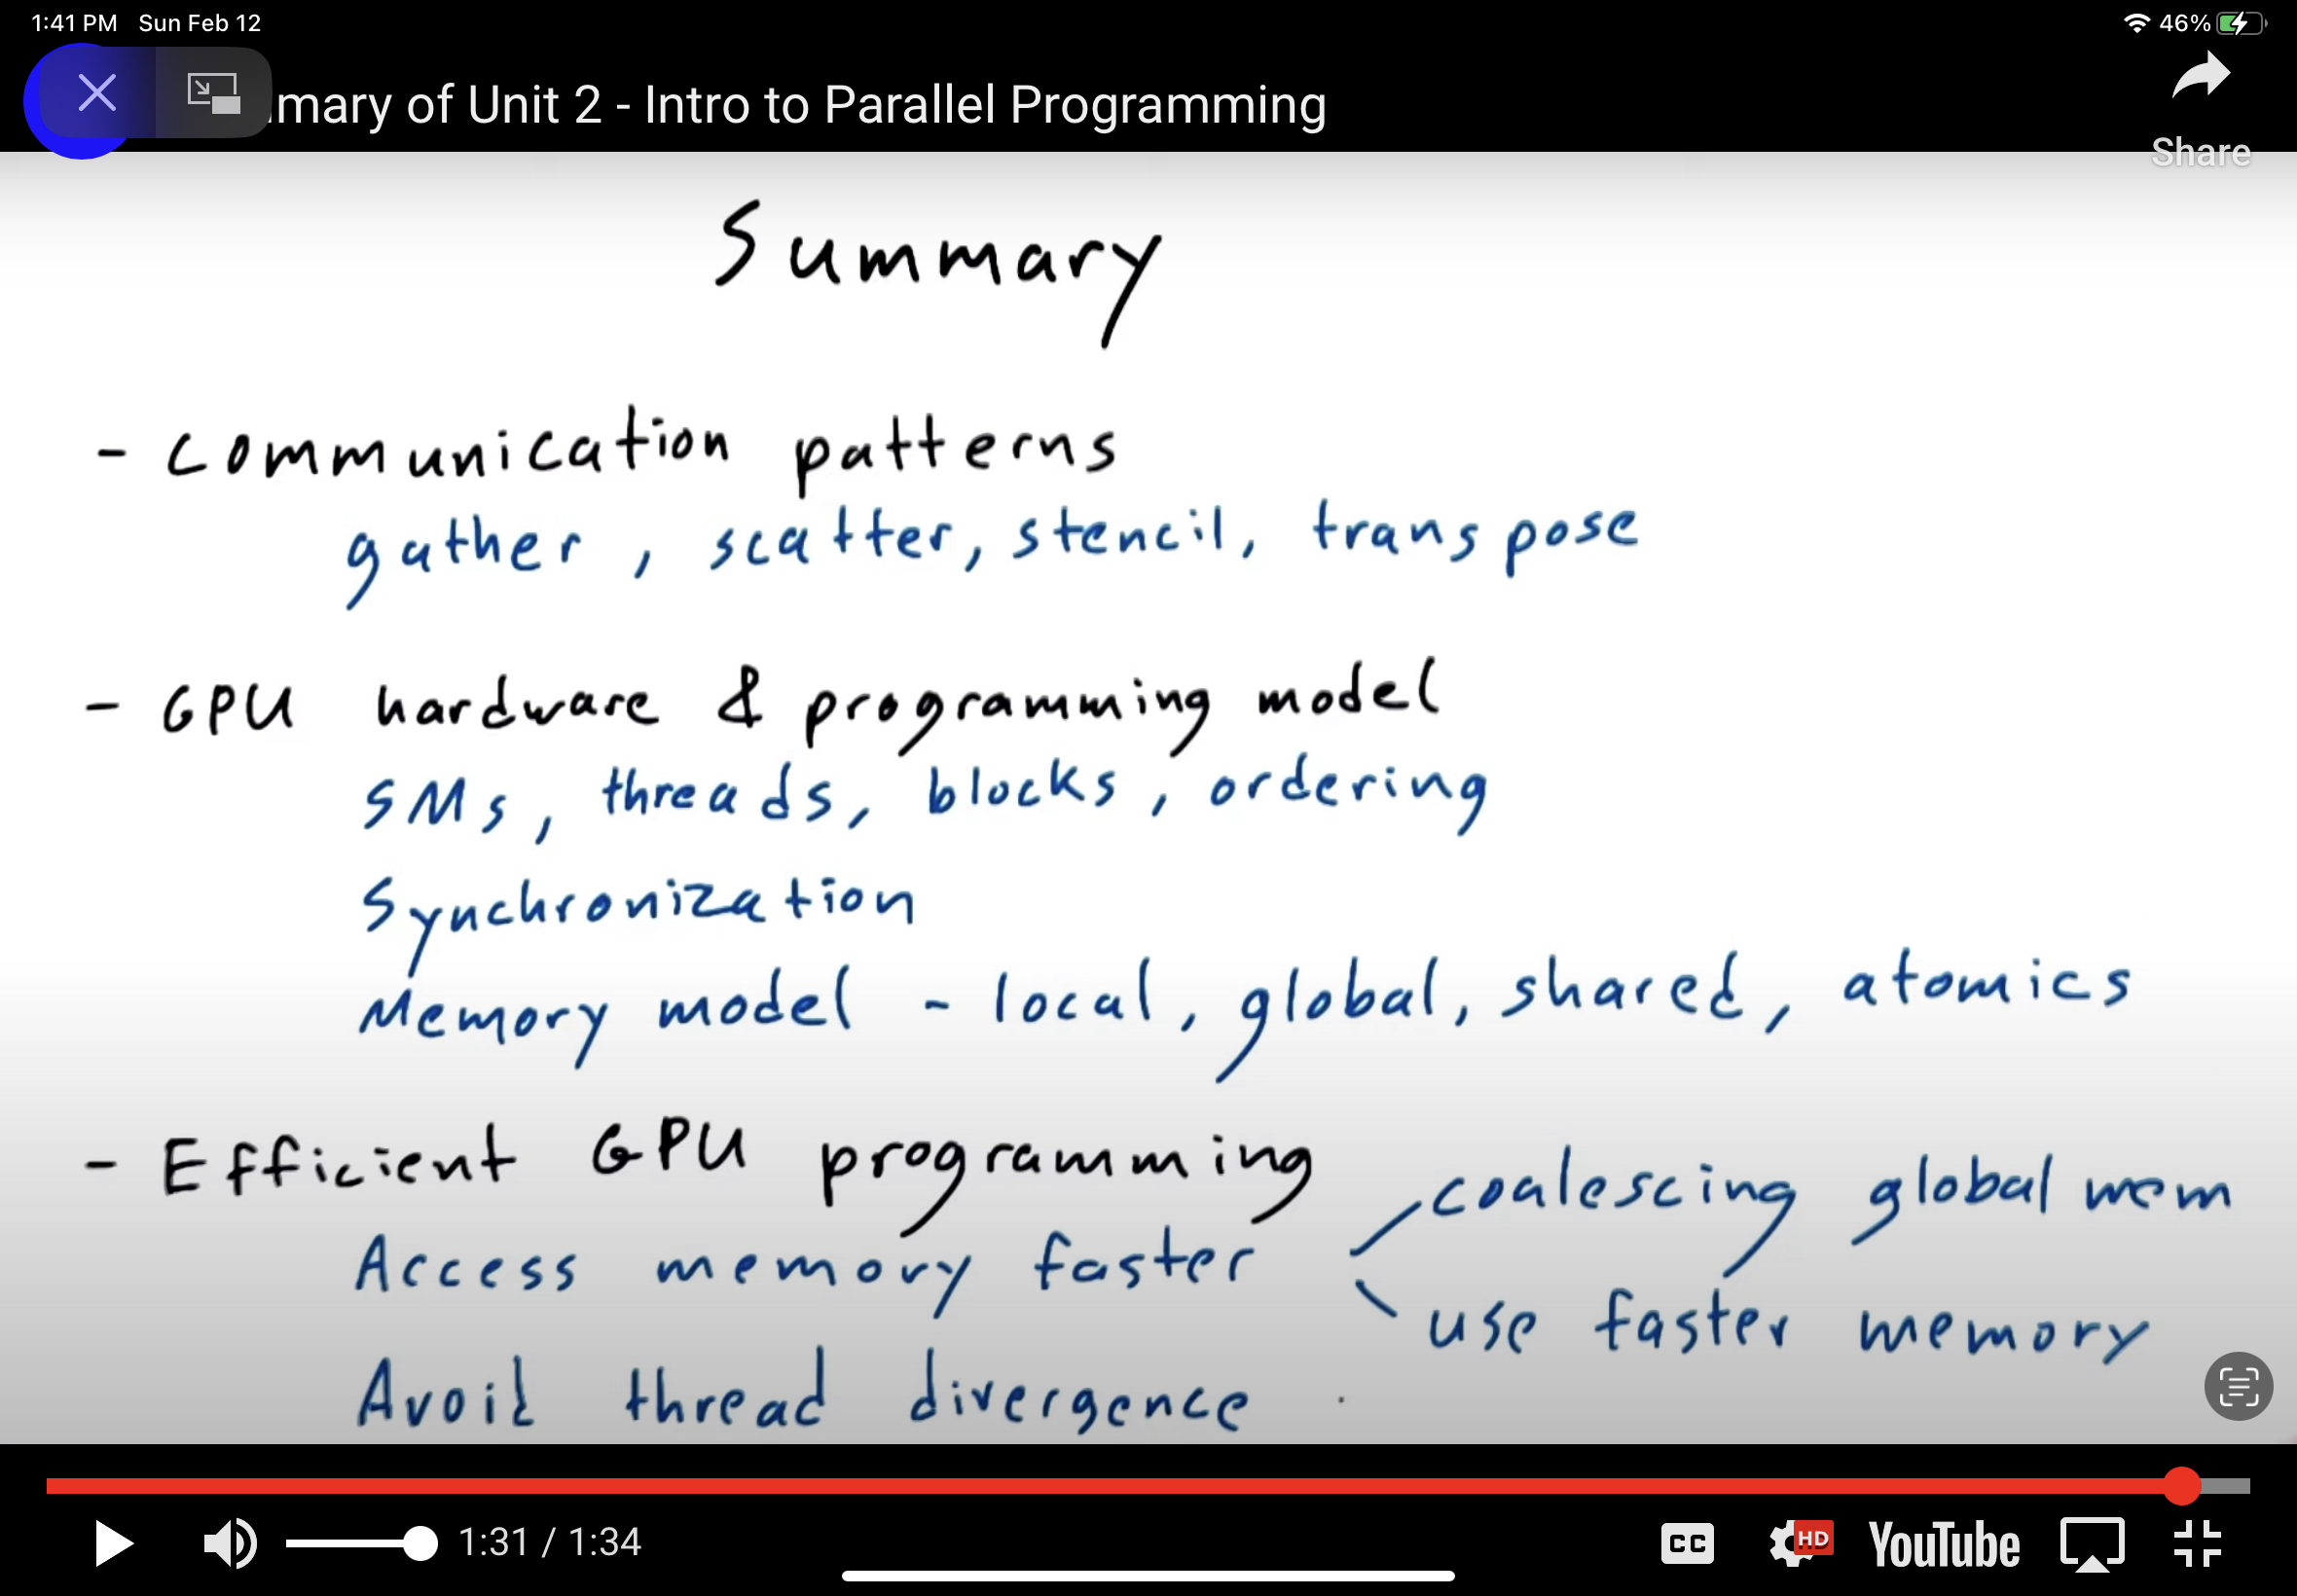 1:41 PM Sun Feb 12
46%
mary of Unit 2 - Intro to Parallel Programming
Share
Summary
- Communication patterns
gather, scatter, stencil, transpose
- GPU hardware & programming model
SMs, threads, blocks, ordering
Synchronization
Memory model - local, global, shared, atomics
- Efficient GPU programming
coalescing global mem
Access memory faster
use faster memory
Avoid thread divergence
1:31 / 1:34
CC
HD
YouTube